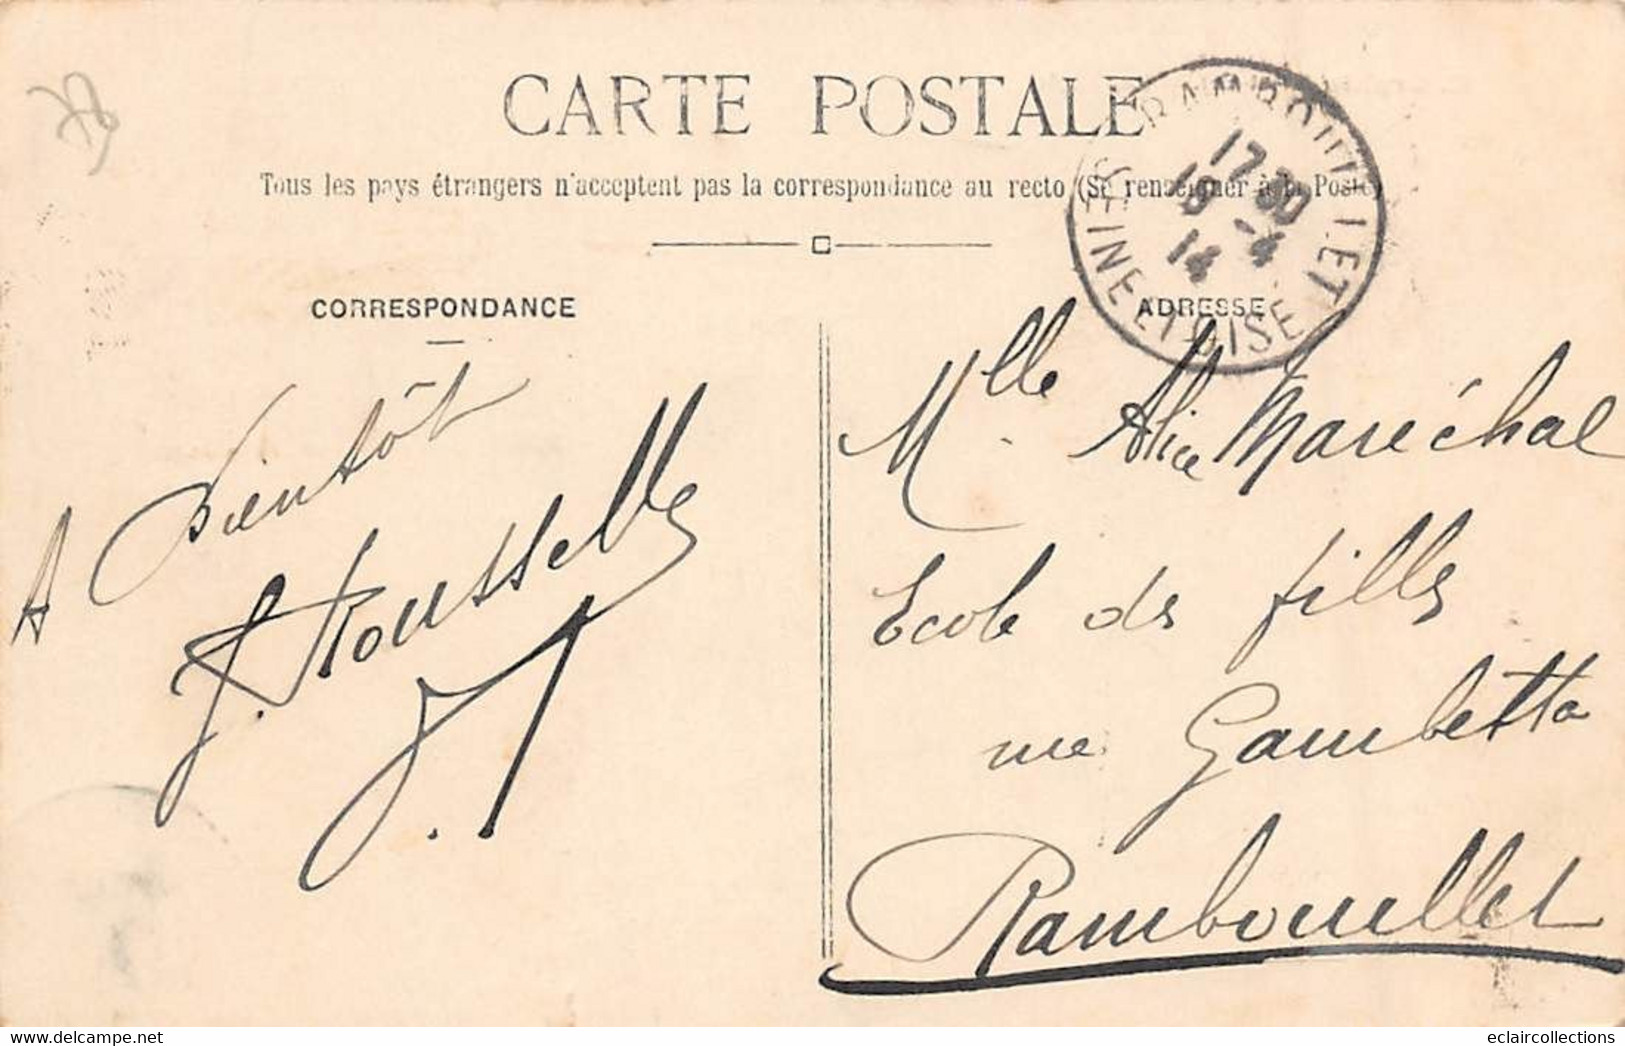 CARTE POSTALE
Tous les pays étrangers n'acceptent pas la correspondance au recto (Se renseigner à la Poste)
CORRESPONDANCE
ADRESSE
RAMBOUILLET
17 30
-4
14
SEINE ET OISE
A Bientôt
J. Rousselle
Mlle Alice Maréchal
Ecole de filles
rue Gambetta
Rambouillet
78
eclaircollections